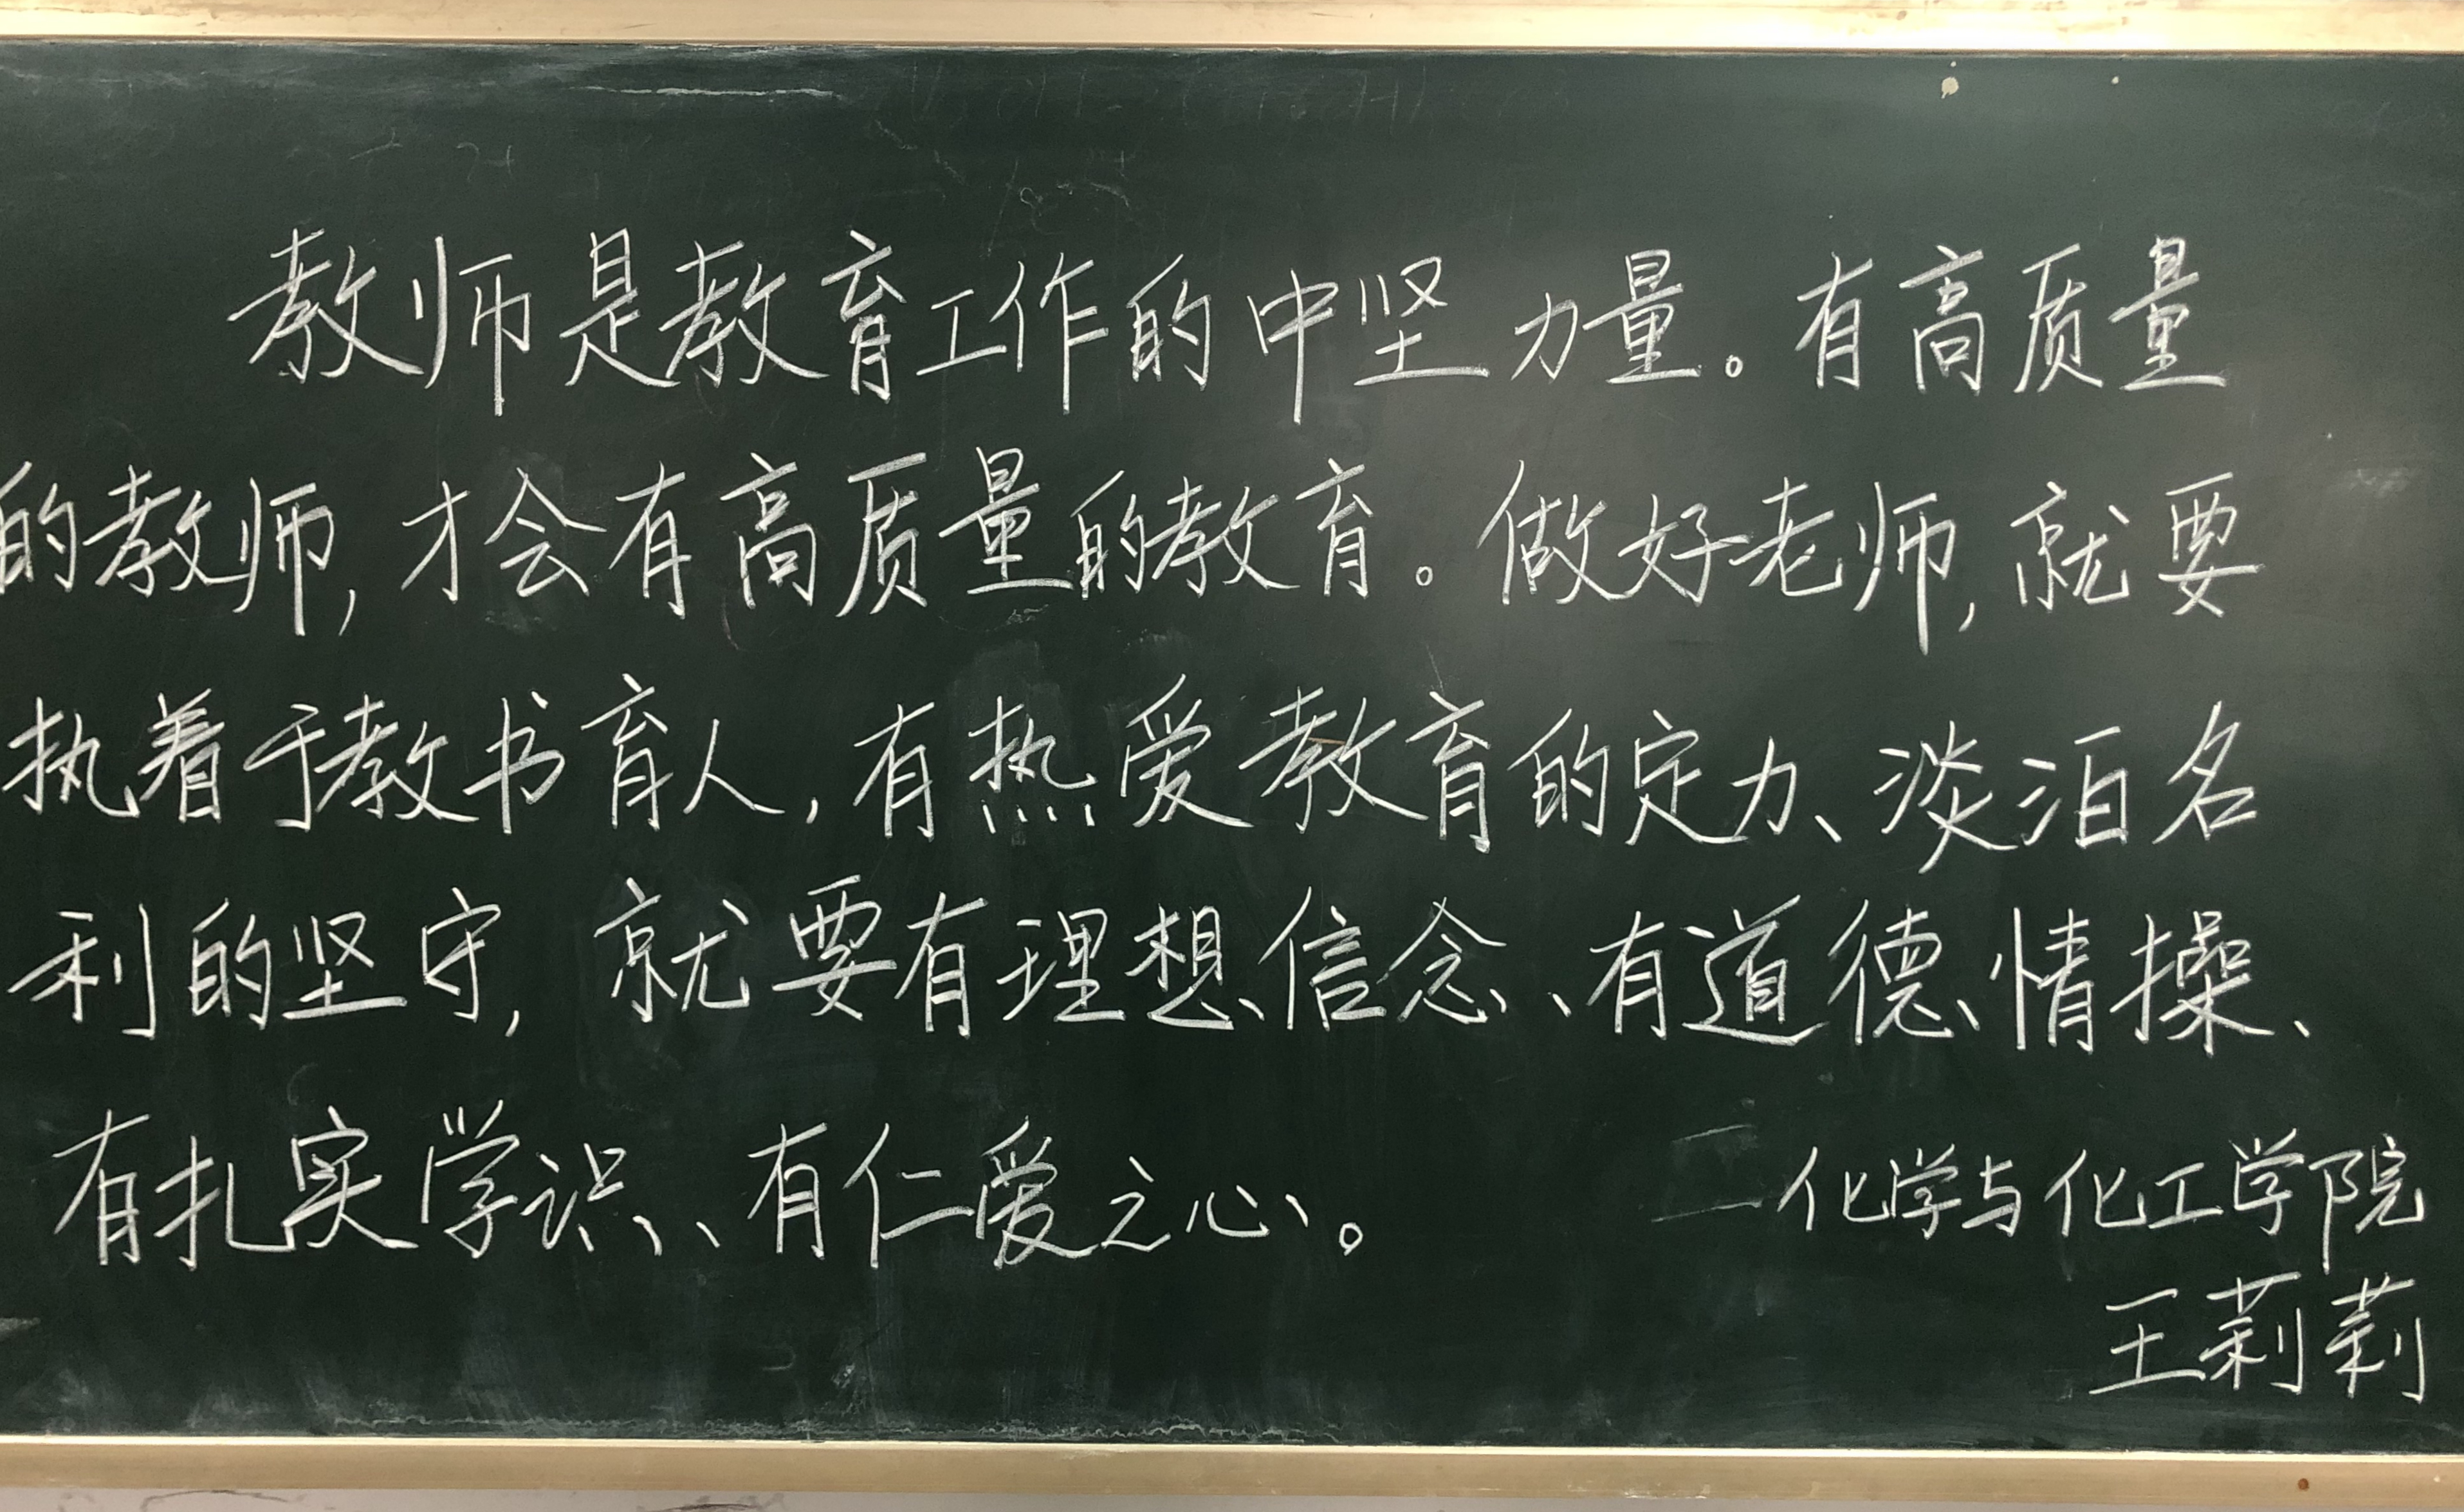 教师是教育工作的中坚力量。有高质量
的教师,才会有高质量的教育。做好老师,就要
执着于教书育人,有热爱教育的定力、淡泊名
利的坚守,就要有理想信念、有道德情操、
有扎实学识、有仁爱之心。
—化学与化工学院
王莉莉